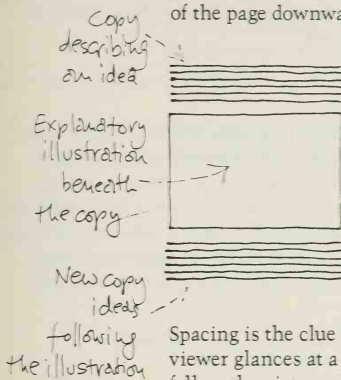 of the page downwa
Copy
describing
an idea
Explanatory
illustration
beneath
the copy
New copy
ideas
following
the illustration
Spacing is the clue
viewer glances at a